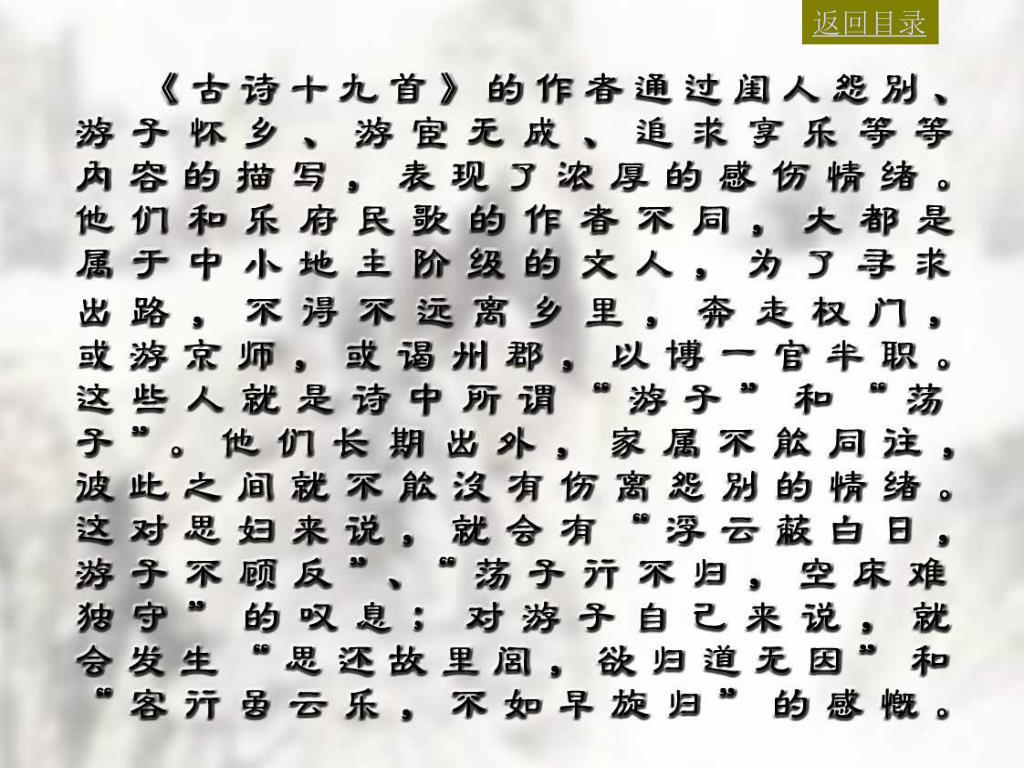 返回目录
《古诗十九首》的作者通过闺人怨别、
游子怀乡、游宦无成、追求享乐等等
内容的描写，表现了浓厚的感伤情绪。
他们和乐府民歌的作者不同，大都是
属于中小地主阶级的文人，为了寻求
出路，不得不远离乡里，奔走权门，
或游京师，或谒州郡，以博一官半职。
这些人就是诗中所谓“游子”和“荡
子”。他们长期出外，家属不能同往，
彼此之间就不能没有伤离怨别的情绪。
这对思妇来说，就会有“浮云蔽白日，
游子不顾反”、“荡子行不归，空床难
独守”的叹息；对游子自己来说，就
会发生“思还故里闾，欲归道无因”和
“客行虽云乐，不如早旋归”的感慨。